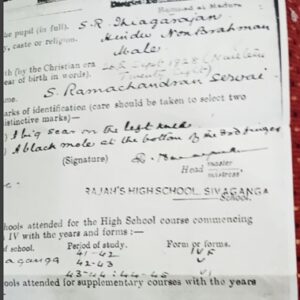 the pupil (in full). S. R. Thiagarajan
y, caste or religion. Hindu Non Brahman
Male
th (by the Christian era
ear of birth in words). Sept. 1928
Twenty Eight)
S. Ramachandran Servai
marks of identification (care should be taken to select two
istinctive marks)—
) A big scar on the left
) A black mole at the bottom of
(Signature)
Head master
mistress
RAJAH'S HIGH SCHOOL, SIVAGANGA
School.
hools attended for the High School course commencing
IV with the years and forms :—
of school. Period of study. Form or forms.
aganga 41-42 IV
42-43 V
43-44 : 44-45 VI
ools attended for supplementary courses with the years